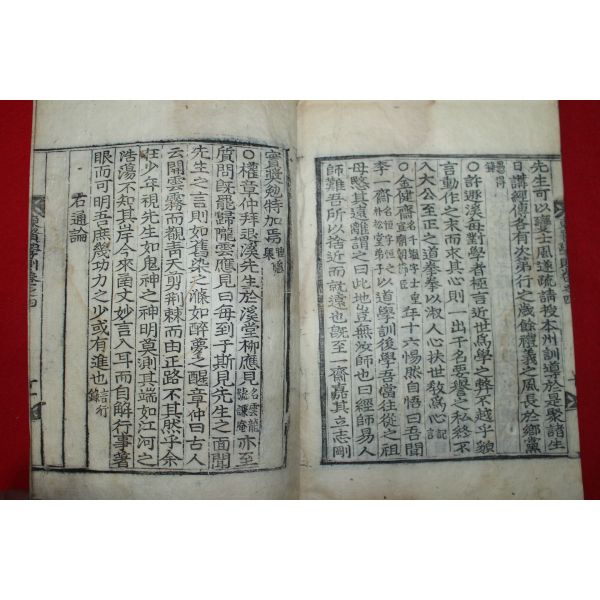 先生可以變士風遂疏請授本州訓導於是聚諸生
日講經傳各有次弟行之歲餘禮義之風長於鄉黨
○許遯溪每對學者極言近世爲學之弊不越乎貌
言動作之末而求其心則一出于名惡譽之私終不
入大公至正之道拳拳以淑人心扶世敎爲心記
○金健齋 字士皇年十六惕然自悟曰吾聞
李一齋 以道學訓後學吾當往從之祖
母愍其遠離謂之曰此地豈無汝師也曰經師易人
師難吾所以捨近而就遠也旣至一齋嘉其立志剛
實將勉特加焉
○權章仲拜退溪先生於溪堂柳應見名雲龍號謙庵亦至
質問旣罷歸隴雲應見曰每到于斯見先生之面聞
先生之言則如舊染之滌如醉夢之醒章仲曰古人
云開雲霧而覩靑天剪荊棘而由正路不其然乎余
在少年視先生如鬼神之神明莫測其端如江河之
浩蕩不知其岸今來函丈妙言入耳而自解行事著
眼而可明吾庶幾功力之少或有進也言行錄
右通論